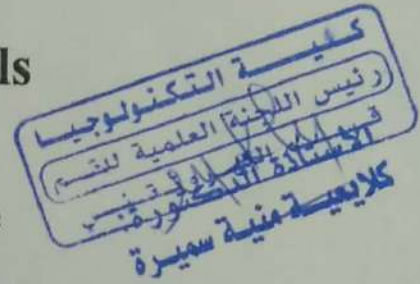 ls
كليـــة التكنولوجيـــا
رئيس اللجنة العلمية للقسم
الأستاذة الدكتورة:
كلايميـــة منية سميرة